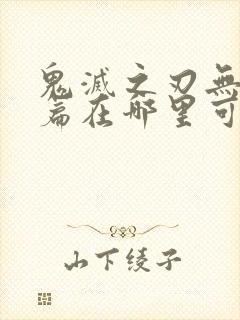 鬼滅之刃無
篇在哪里可
山下绫子